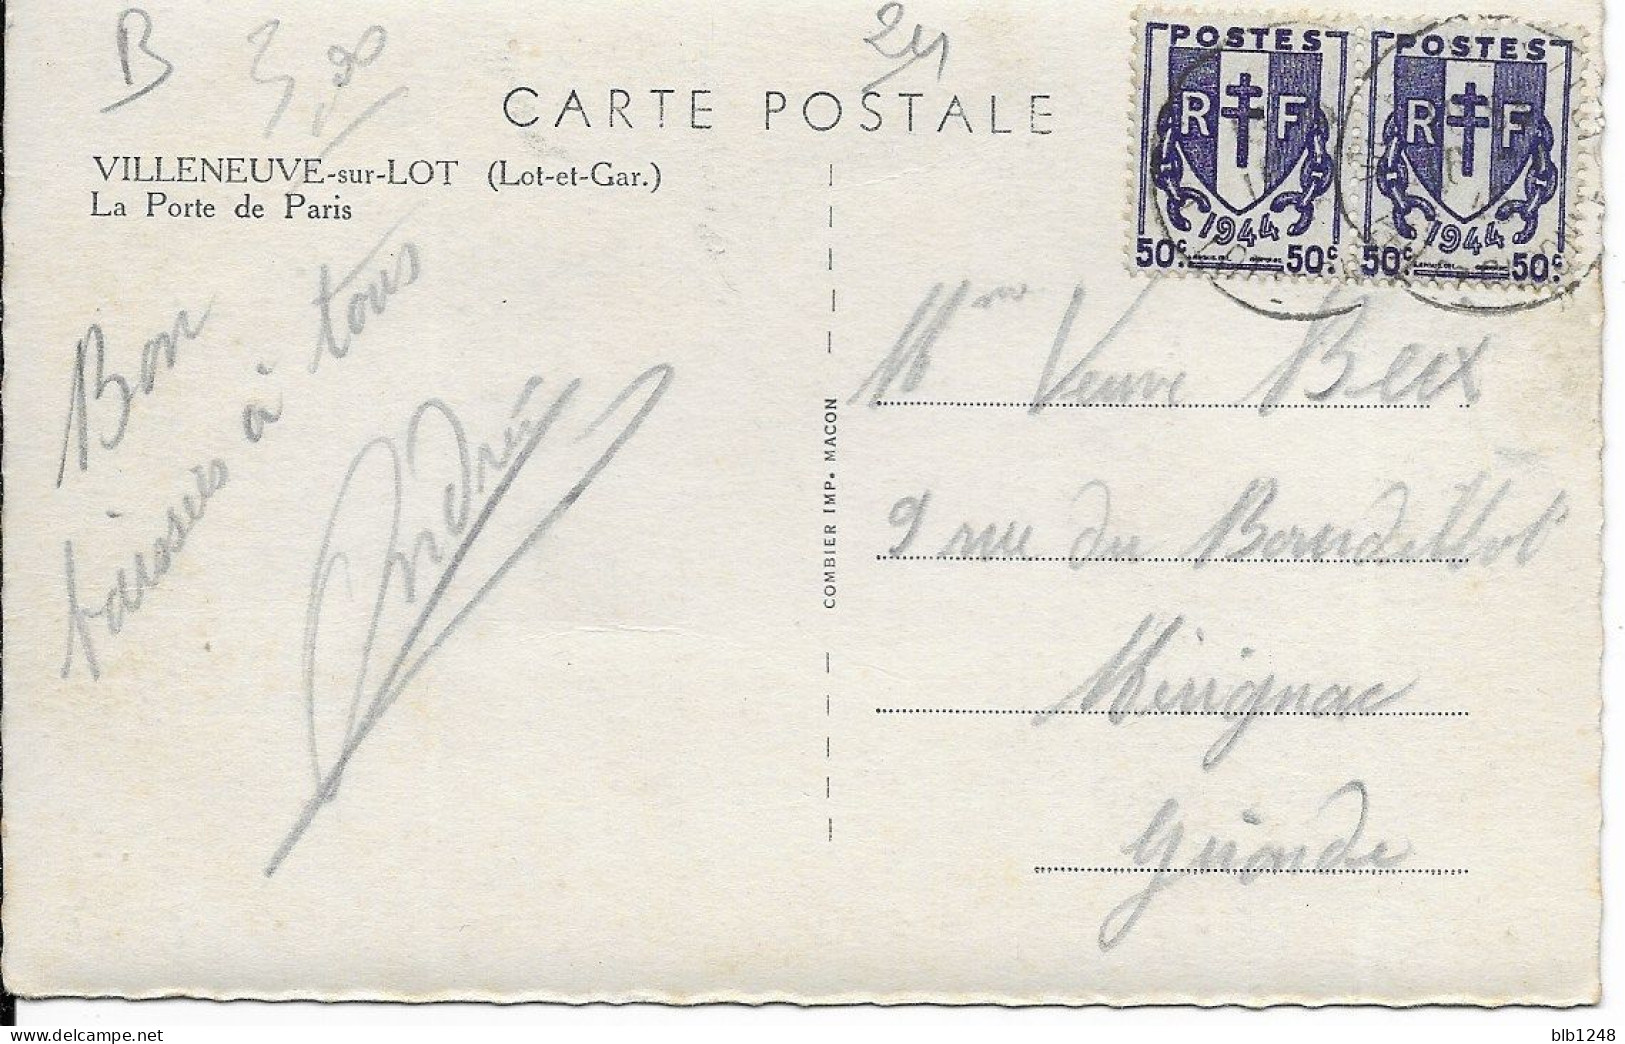 B 3,90
24
CARTE POSTALE
VILLENEUVE-sur-LOT (Lot-et-Gar.)
La Porte de Paris
POSTES
R F
1944
50c. 50c.
POSTES
R F
1944
50c. 50c.
Bon
baisers à tous
André
COMBIER IMP. MACON
Mme Veuve Beix
9 rue du
Mérignac
Gironde
blb1248